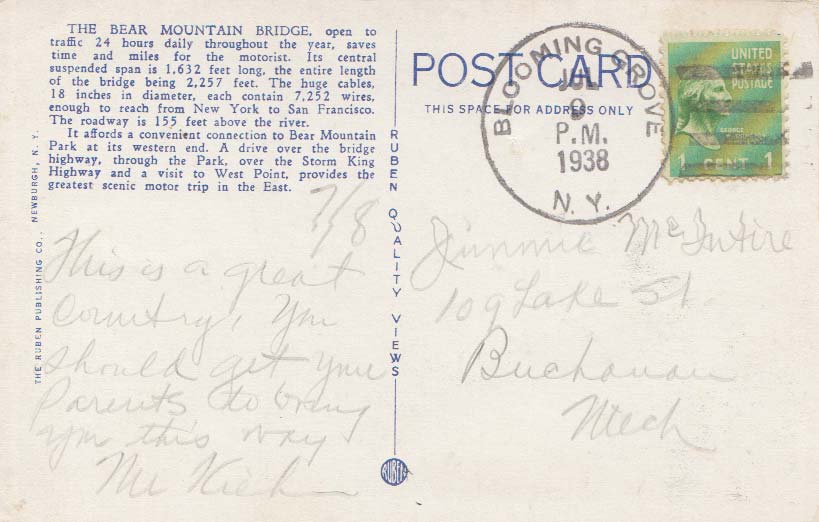 THE BEAR MOUNTAIN BRIDGE, open to
traffic 24 hours daily throughout the year, saves
time and miles for the motorist. Its central
suspended span is 1,632 feet long, the entire length
of the bridge being 2,257 feet. The huge cables,
18 inches in diameter, each contain 7,252 wires,
enough to reach from New York to San Francisco.
The roadway is 155 feet above the river.
It affords a convenient connection to Bear Mountain
Park at its western end. A drive over the bridge
highway, through the Park, over the Storm King
Highway and a visit to West Point, provides the
greatest scenic motor trip in the East.
7/8
This is a great
Country, You
should get your
Parents to bring
you this way
Mr
THE RUBEN PUBLISHING CO., NEWBURGH, N. Y.
RUBEN QUALITY VIEWS
RUBEN
POST CARD
THIS SPACE FOR ADDRESS ONLY
BLOOMING GROVE
JUL
9
P.M.
1938
N. Y.
UNITED
STATES
POSTAGE
GEORGE
1 CENT 1
Jimmie McIntire
109 Lake St.
Buchanan
Mech